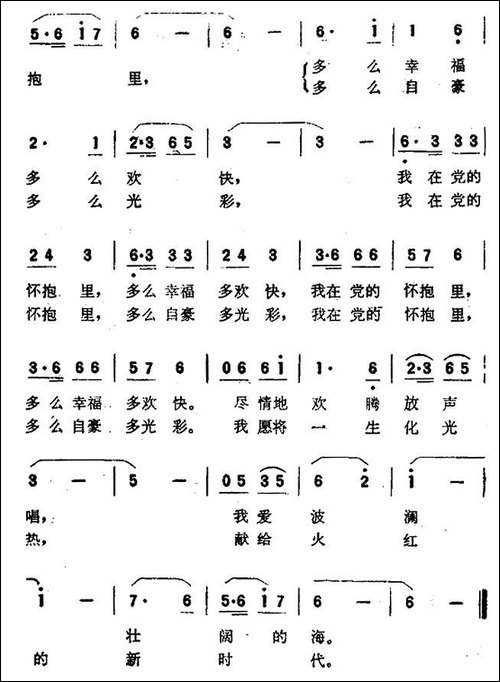 5·6 i7 | 6 — | 6 — | 6· i | 1 6 |
抱 里， 多 么 幸 福
多 么 自 豪
2· 1 | 2·3 65 | 3 — | 3 — | 6·3 33 |
多 么 欢 快， 我 在 党的
多 么 光 彩， 我 在 党的
24 3 | 6·3 33 | 24 3 | 3·6 66 | 57 6 |
怀抱 里， 多么 幸福 多欢 快， 我在 党的 怀抱 里，
怀抱 里， 多么 自豪 多光 彩， 我在 党的 怀抱 里，
3·6 66 | 57 6 | 06 6i | 1· 6 | 2·3 65 |
多么 幸福 多欢 快。 尽 情地 欢 腾 放 声
多么 自豪 多光 彩。 我 愿将 一 生 化 光
3 — | 5 — | 05 35 | 6 2 | i — |
唱， 我 爱 波 澜
热， 献给 火 红
i — | 7· 6 | 5·6 i7 | 6 — | 6 — ‖
壮 阔 的 海。
的 新 时 代。